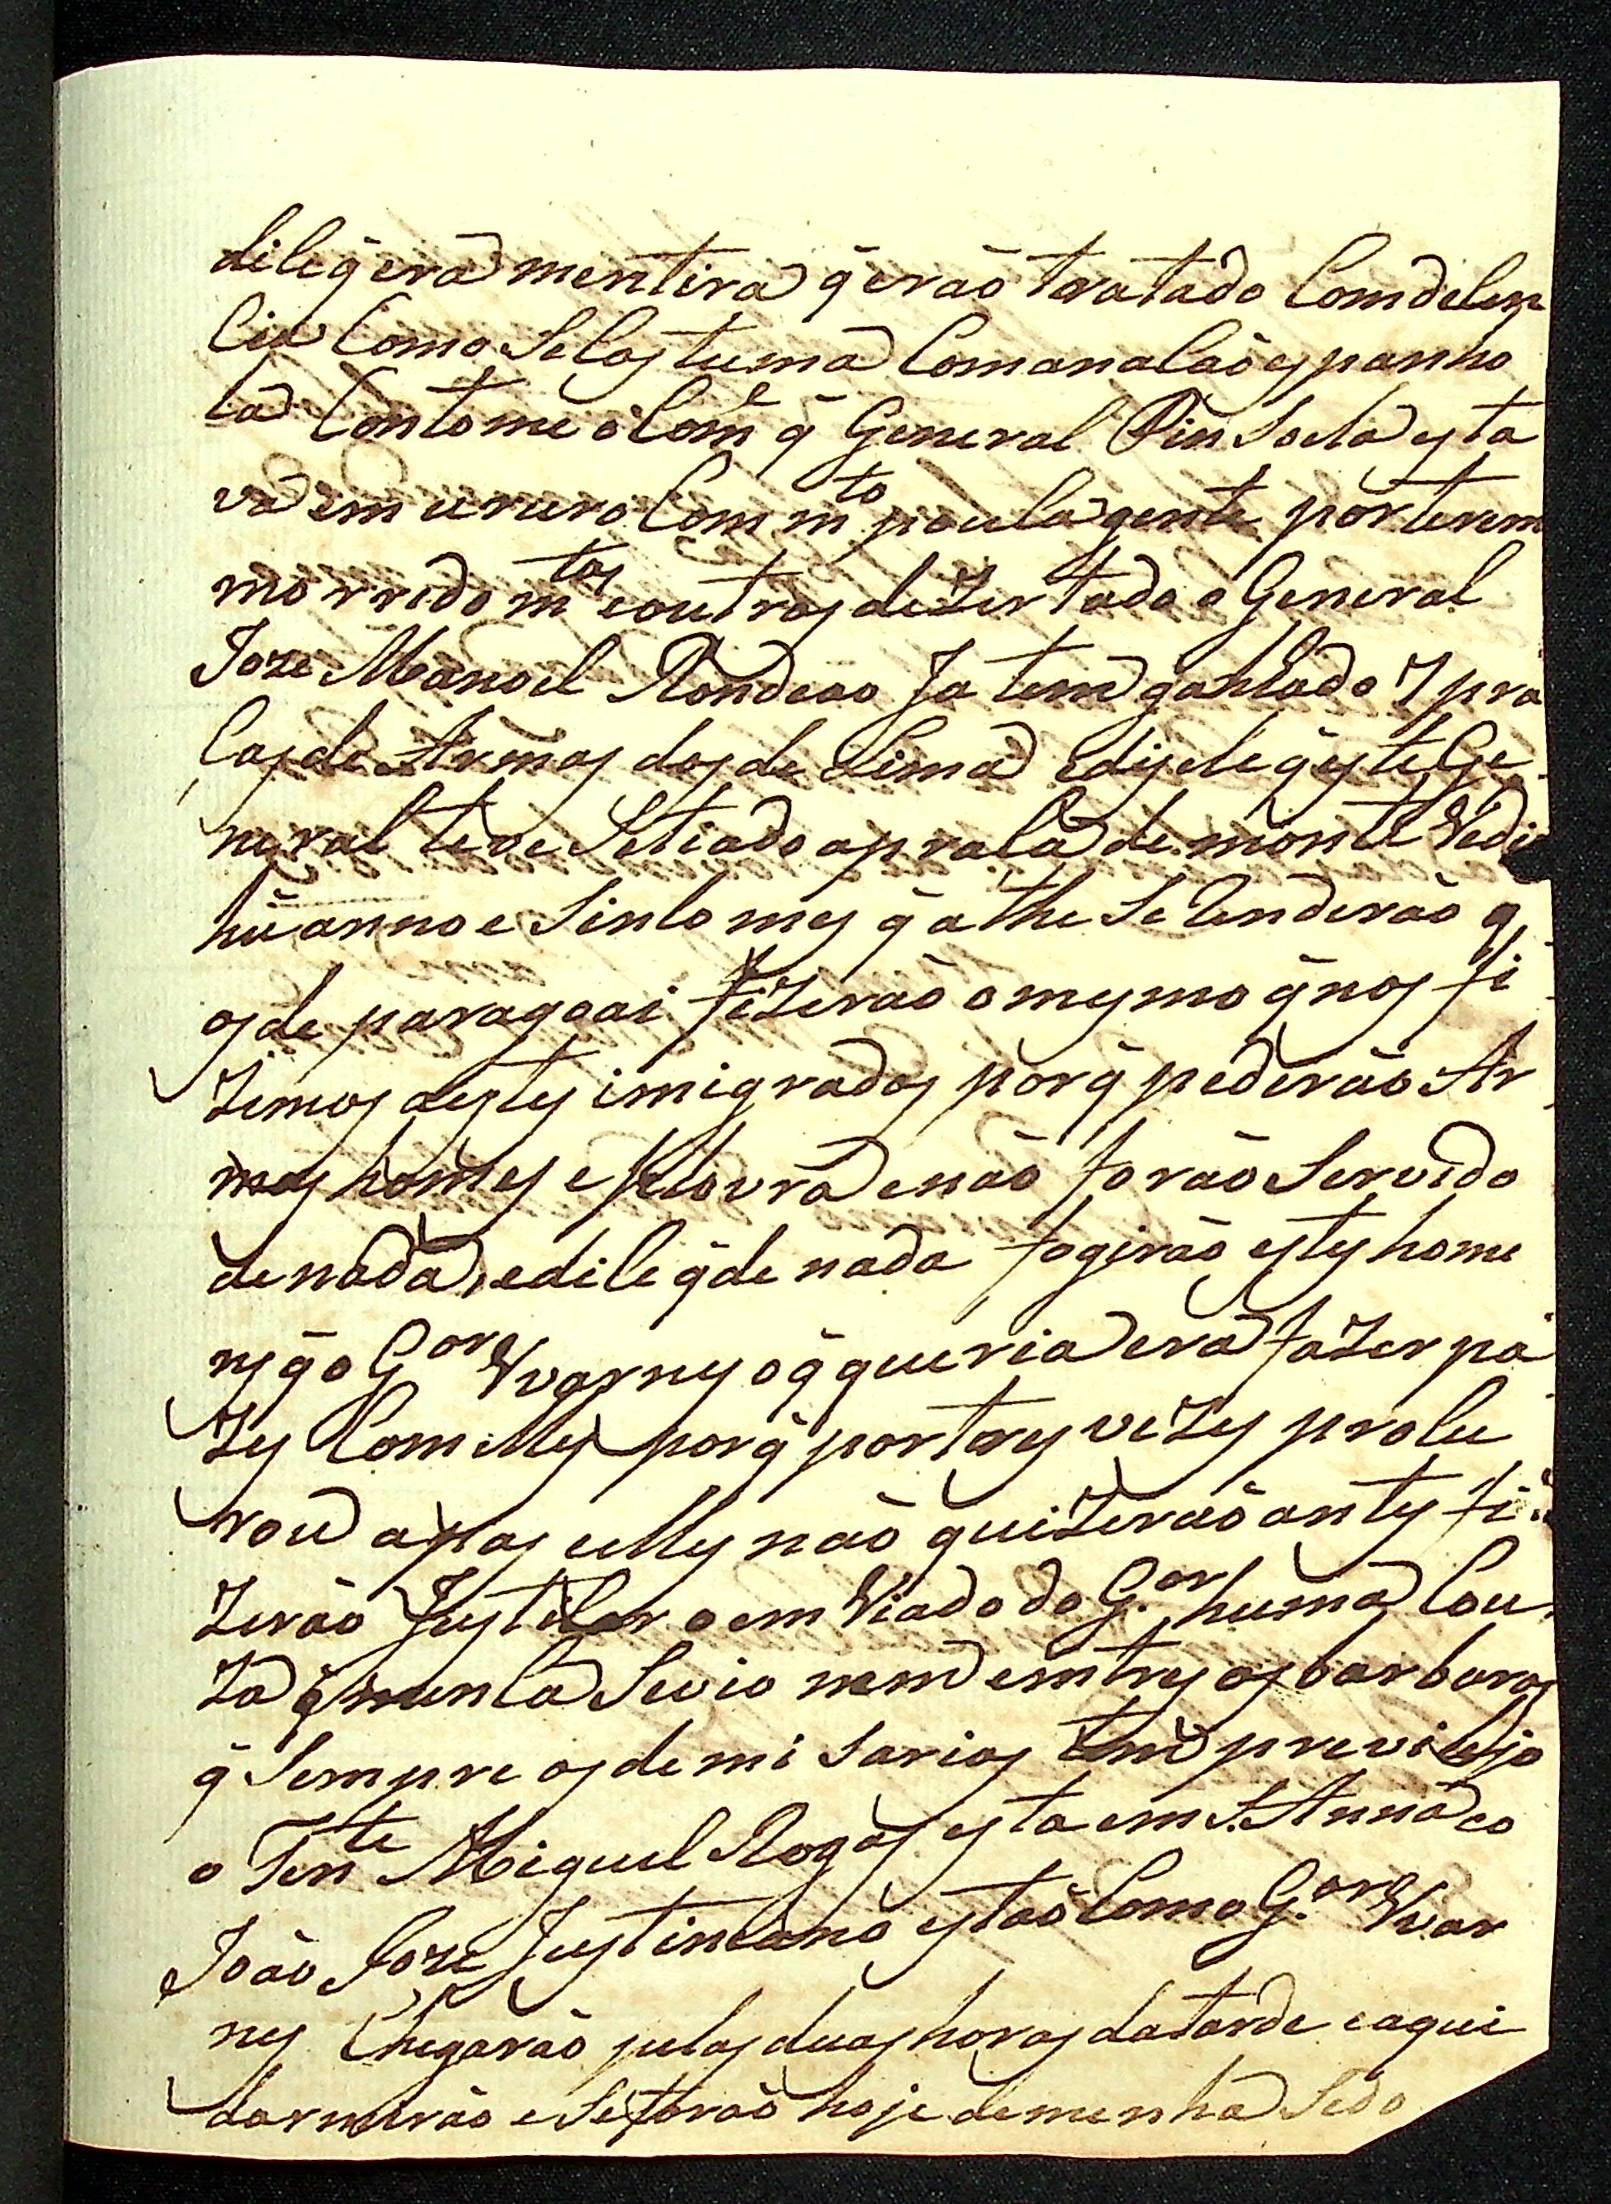 dile q̃ era mentira q̃ erão tratado Com delen
Cia Como Se Costuma Coma nação espanho
la Contome o Com.e q̃ General Pin Soela esta
va em ururo Com m.to pouca gente por terem
morrido m.tos e outros dezertado o General
Joze Manoel Rondeao Ja tem ganhado 7 pra
Cas de Armas dos de Lima e dis ele q̃ este Ge
neral teve Setiado a praca de monte Vedio
hũ anno e Sinco mes q̃ a the Se Renderão q̃
os de paragoai fizerão o mesmo q̃ nos fi
zemos a estes imigrados por q̃ pederão Ar
mas homes e Polovra e não forão Servido
de nada, e dice q̃ de nada fogirão estes home
ns q̃ o G.or Warnes o q̃ queria era fazer pa
zes Com elles por q̃ por tres vezes procu
rou a pas e elles não quizerão antes fi
zerão Justicar o em Viado do G.or huma Cou
za q̃ nunca Se vio nem em tres os barbaros
q̃ Sempre os de mi sarios tem previlejo
o Ten.te Miguel Rogas esta em S. Anna co
João Joze Justiniano estão Com o G.or War
nes Chegarão pelas duas horas da tarde e aqui
dormirão e Se forão hoje de menha Sedo